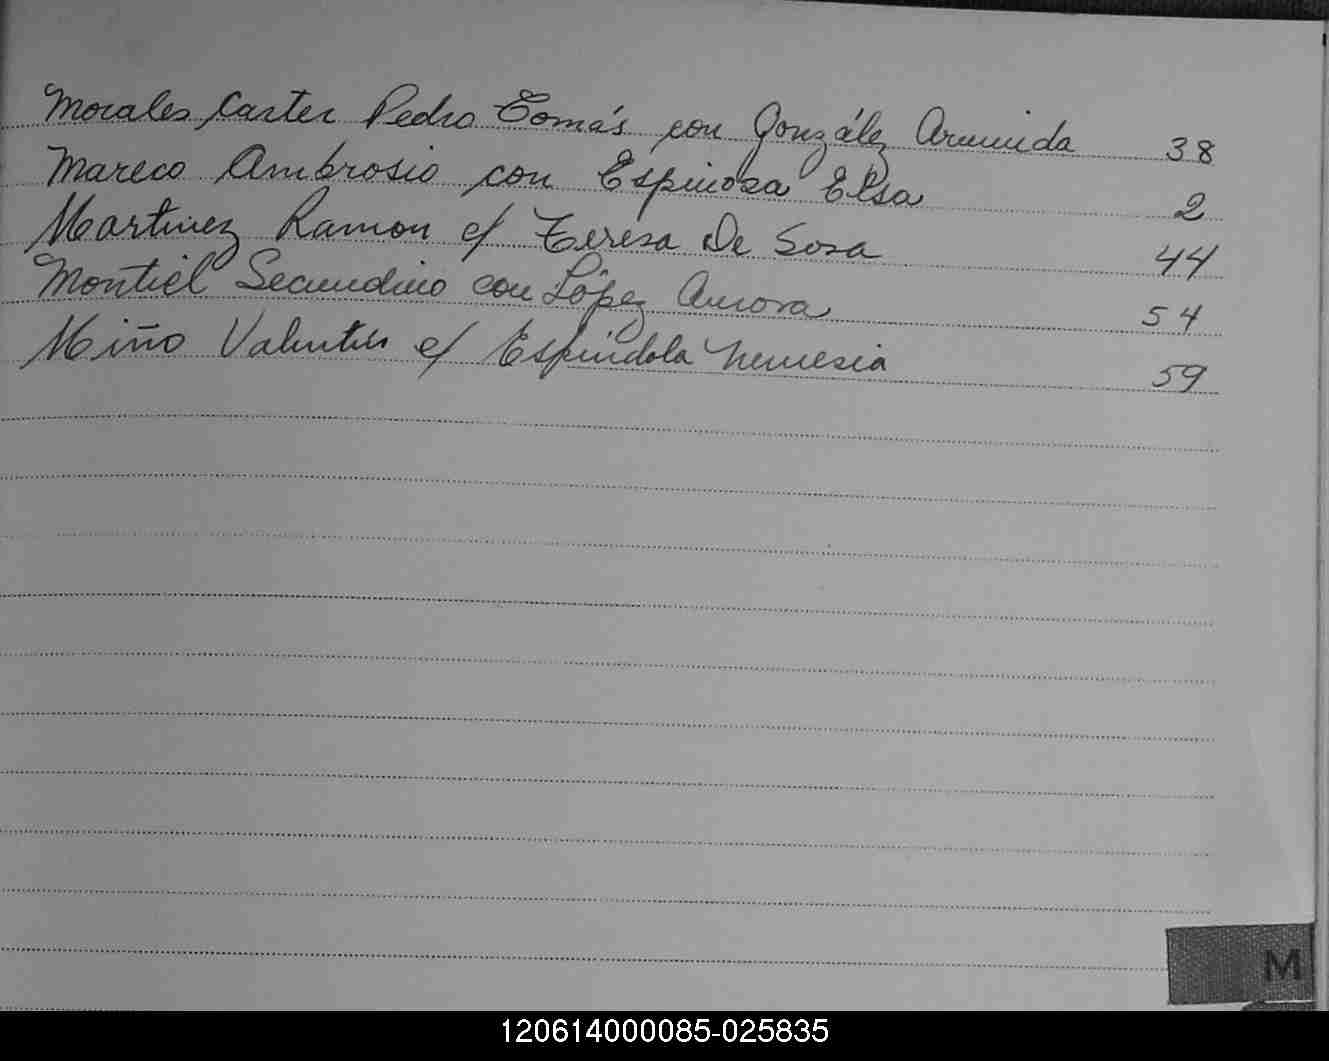 Morales Carter Pedro Tomás con González Arminida 38
Mareco Ambrosio con Espinoza Elsa 2
Martinez Ramon c/ Teresa De Sosa 44
Montiel Secundino con López Aurora 54
Miño Valentin c/ Espindola Nemesia 59
M
120614000085-025835